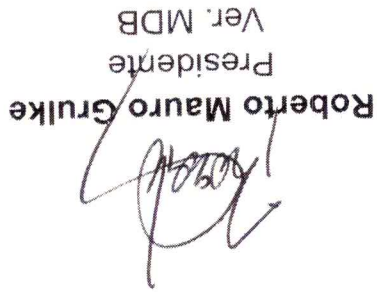 Roberto Mauro Grulke
Presidente
Ver. MDB